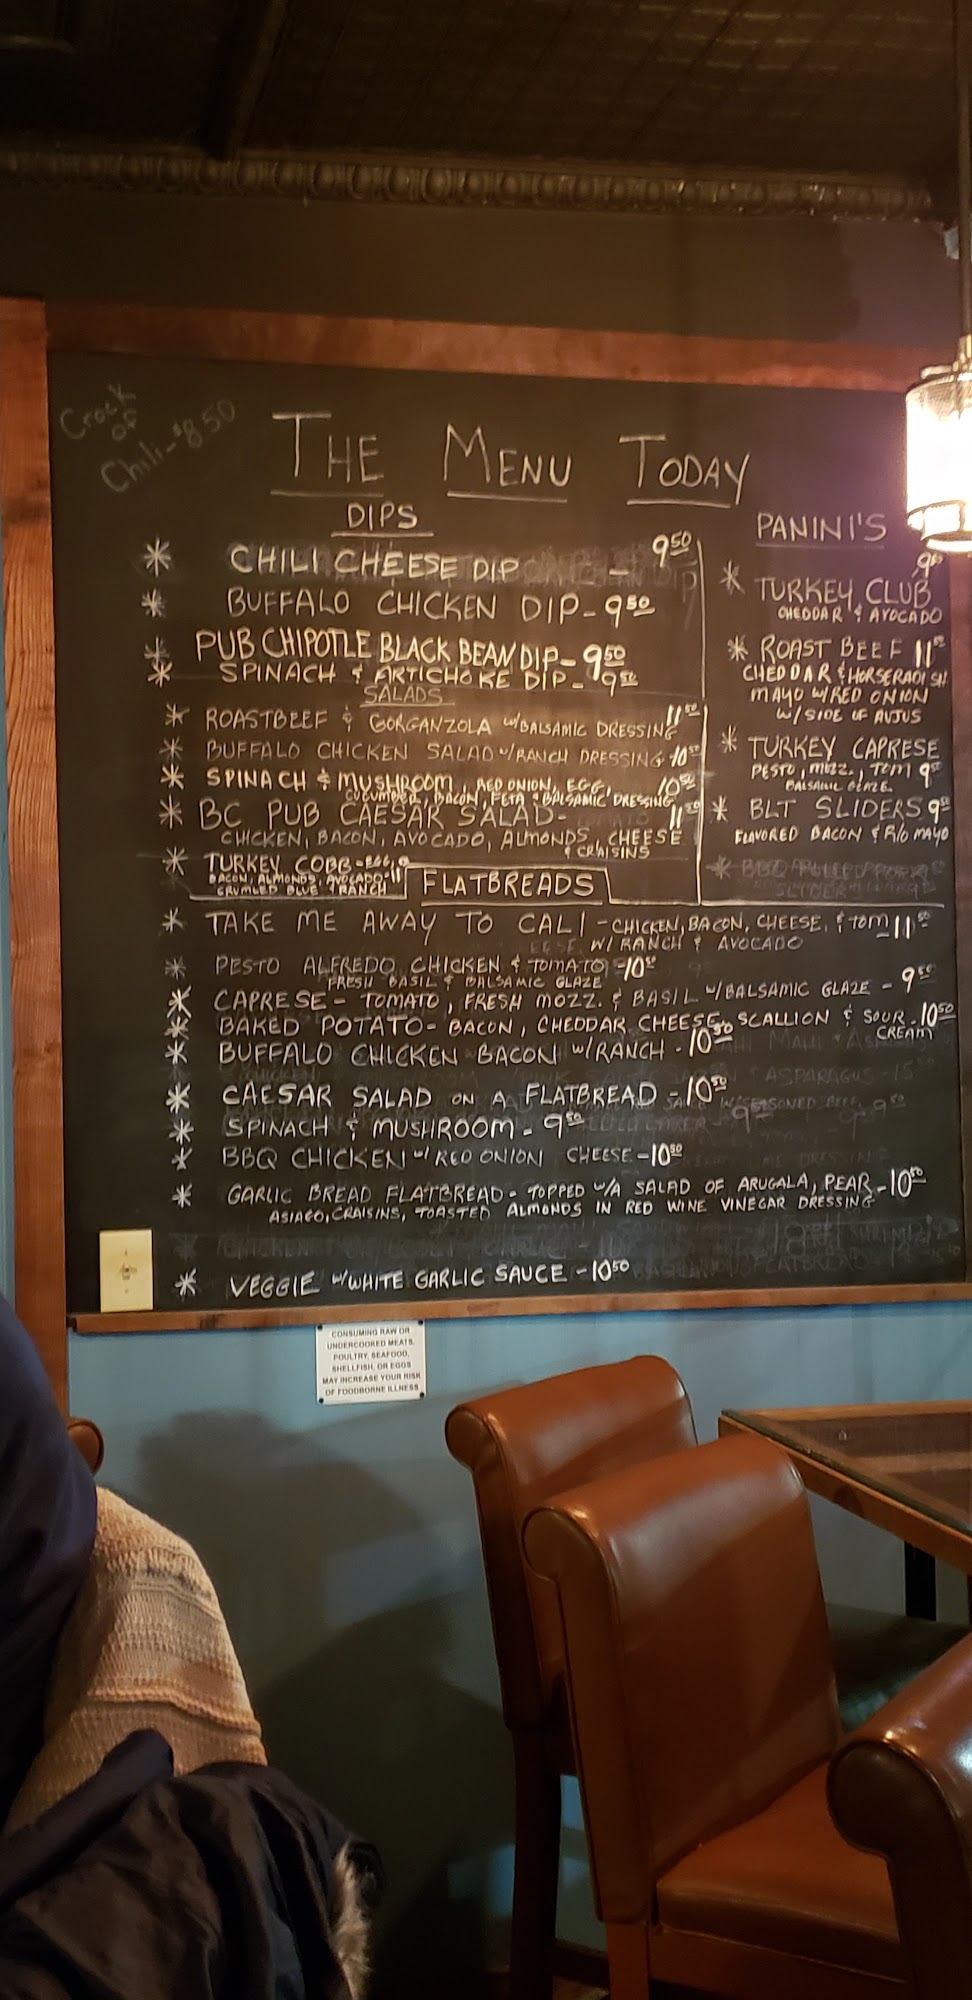 Crock
of
Chili - $8.50
THE MENU TODAY
DIPS
CHILI CHEESE DIP - 9.50
BUFFALO CHICKEN DIP - 9.50
PUB CHIPOTLE BLACK BEAN DIP - 9.50
SPINACH & ARTICHOKE DIP - 9.50
SALADS
ROASTBEEF & GORGANZOLA w/BALSAMIC DRESSING 11.50
BUFFALO CHICKEN SALAD w/RANCH DRESSING - 10.50
SPINACH & MUSHROOM, RED ONION, EGG, 10.50
CUCUMBER, BACON, FETA & BALSAMIC DRESSING
BC PUB CAESAR SALAD - 11.50
CHICKEN, BACON, AVOCADO, ALMONDS, CHEESE
& CRAISINS
TURKEY COBB - EGG,
BACON, ALMONDS, AVOCADO - 11
CRUMLED BLUE & RANCH
PANINI'S
9.50
TURKEY CLUB
CHEDDAR & AVOCADO
ROAST BEEF 11.50
CHEDDAR & HORSERADISH
MAYO W/RED ONION
W/SIDE OF AUJUS
TURKEY CAPRESE
PESTO, MOZZ., TOM 9.50
BALSAMIC GLAZE
BLT SLIDERS 9.50
FLAVORED BACON & R/O MAYO
BBQ PULLED PORK
SLIDER
FLATBREADS
TAKE ME AWAY TO CALI - CHICKEN, BACON, CHEESE, & TOM 11.50
W/ RANCH & AVOCADO
PESTO ALFREDO CHICKEN & TOMATO - 10.50
FRESH BASIL & BALSAMIC GLAZE
CAPRESE - TOMATO, FRESH MOZZ. & BASIL w/BALSAMIC GLAZE - 9.50
BAKED POTATO - BACON, CHEDDAR CHEESE, SCALLION & SOUR - 10.50
CREAM
BUFFALO CHICKEN BACON w/RANCH - 10.50
CAESAR SALAD ON A FLATBREAD - 10.50
SPINACH & MUSHROOM - 9.50
BBQ CHICKEN w/RED ONION CHEESE - 10.50
GARLIC BREAD FLATBREAD - TOPPED w/A SALAD OF ARUGALA, PEAR - 10.50
ASIAGO, CRAISINS, TOASTED ALMONDS IN RED WINE VINEGAR DRESSING
VEGGIE w/WHITE GARLIC SAUCE - 10.50
CONSUMING RAW OR
UNDERCOOKED MEATS,
POULTRY, SEAFOOD,
SHELLFISH, OR EGGS
MAY INCREASE YOUR RISK
OF FOODBORNE ILLNESS